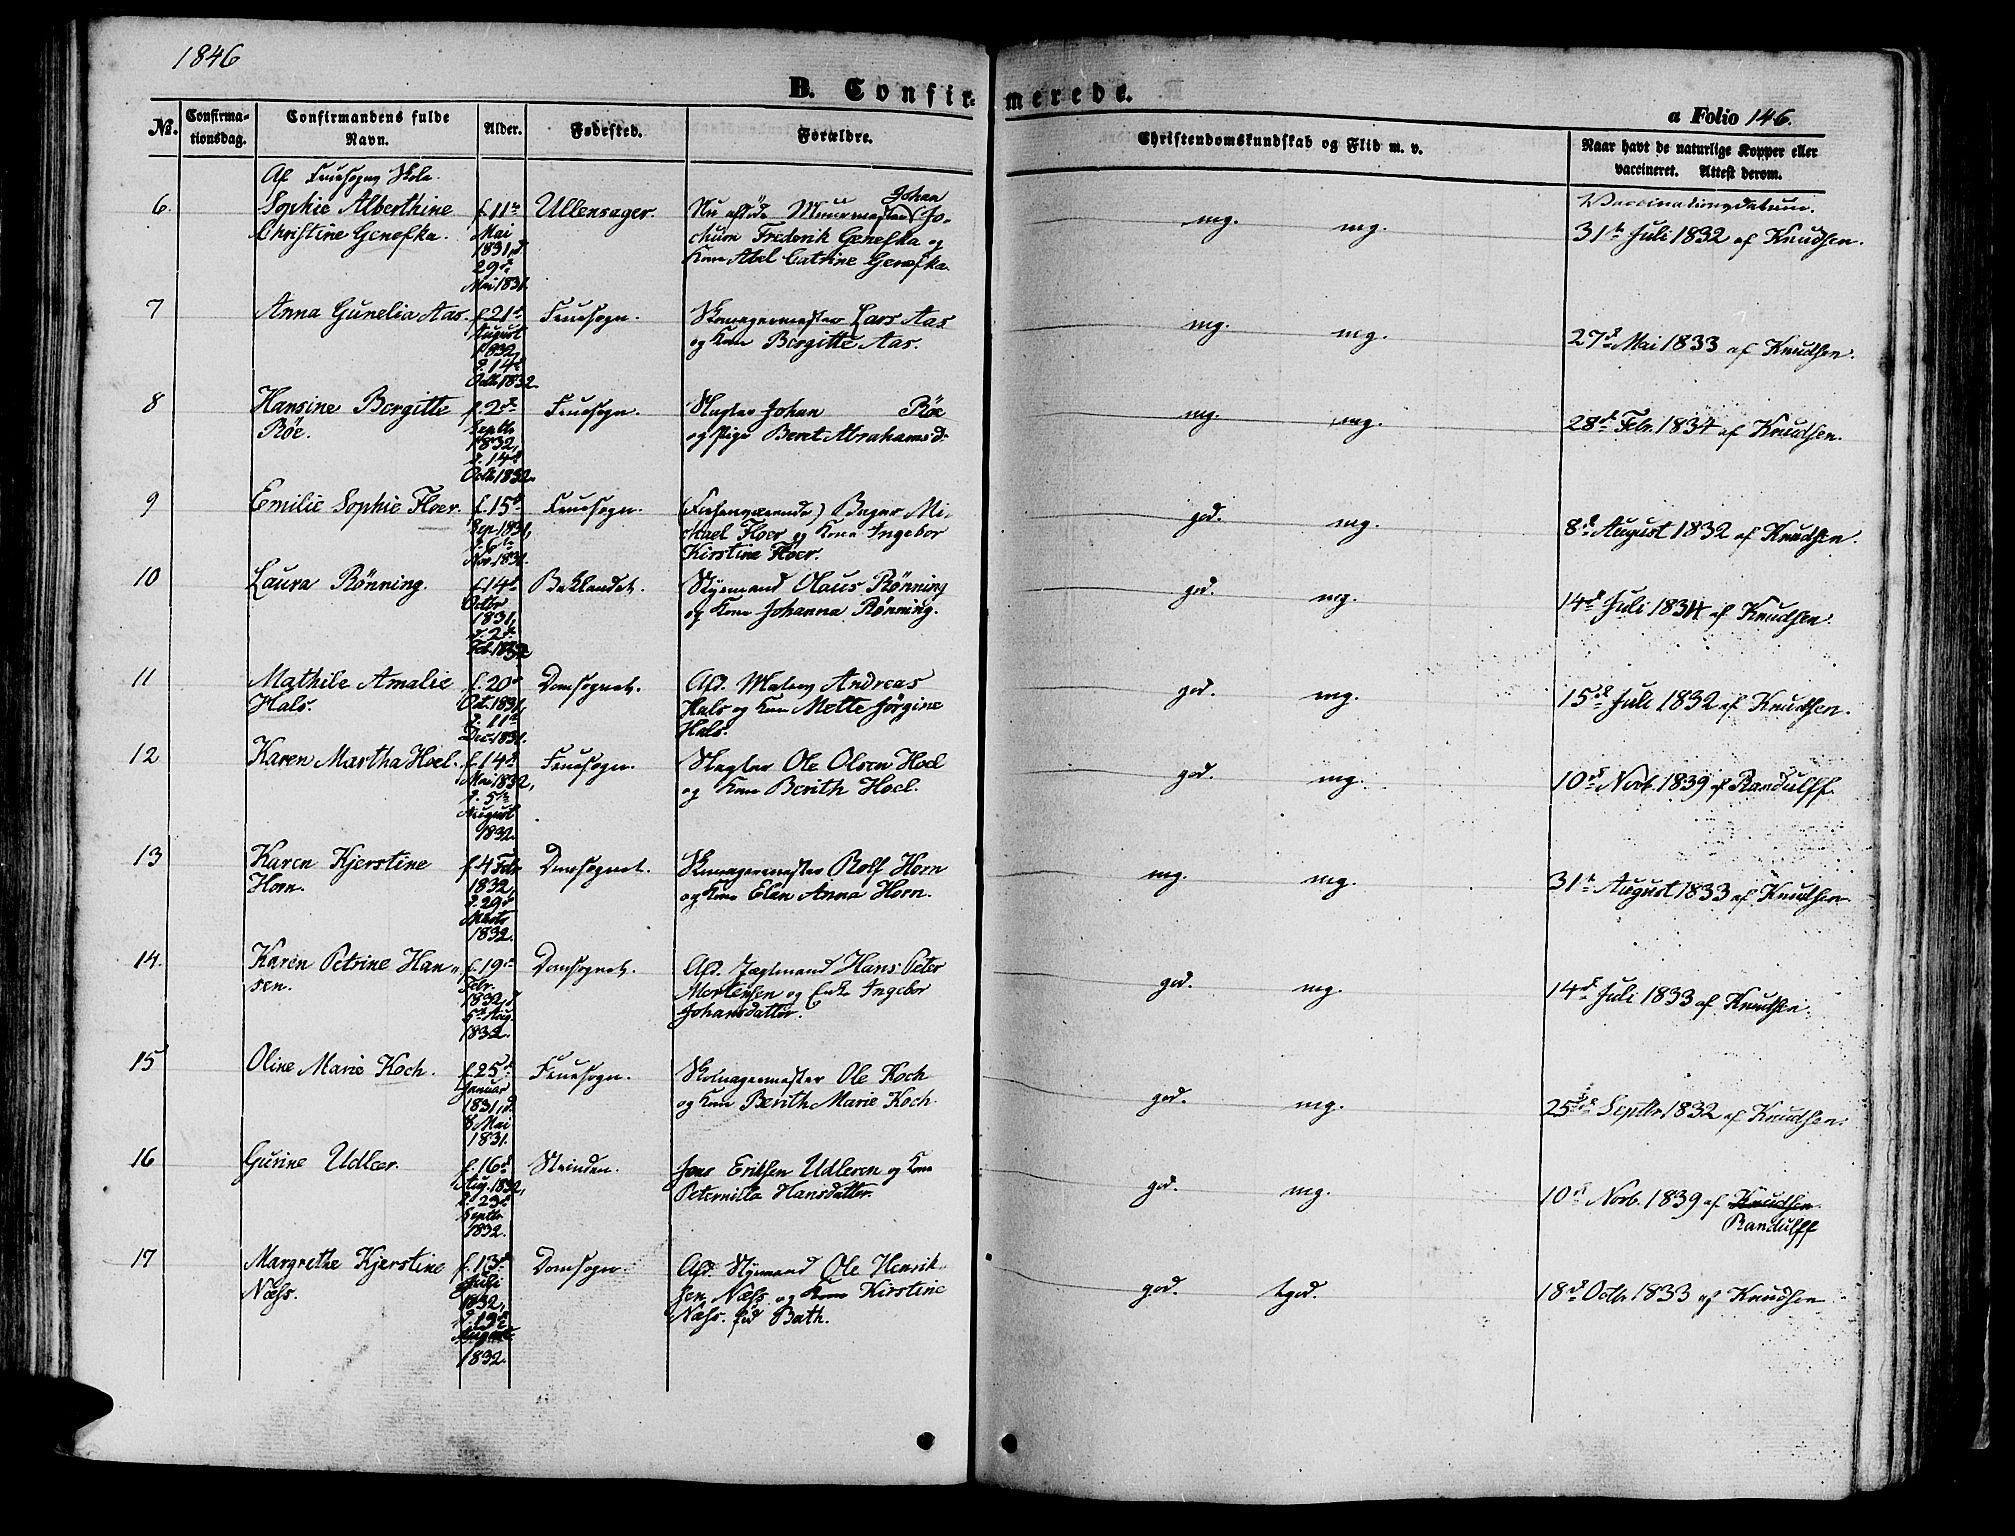 1846
B. Confirmerede.
a Folio 146.
No.
Confirmationsdag.
Confirmandens fulde Navn.
Alder.
Fødested.
Forældre.
Christendomskundskab og Flid m. v.
Naar havt de naturlige Kopper eller vaccineret. Attest derom.
Af Fruesogns Skole.
Vaccinationsdatum.
6. Sophie Alberthine
Christine Genefka.
f. 11te
Mai
1831, d.
29de
Mai 1831.
Ullensager.
Nu afdøde Muurmester Johan Jo-
chum Frederik Genefka og
Kone Abel Catrine Genefka.
mg. mg.
31te Juli 1832 af Knudsen.
7 Anna Gunelia Aas.
f. 21de
August
1832,
d. 14de
Octb. 1832.
Fruesogn.
Skomagermester Lars Aas
og Kone Bergitte Aas.
mg. mg.
27de Mai 1833 af Knudsen.
8 Hansine Bergitte
Röe.
f. 2den
Septbr
1832,
d. 14de
Octb 1832.
Fruesogn.
Slagter Johan Röe
og Pige Beret Abrahamsd.
mg. mg.
28de Febr. 1834 af Knudsen.
9 Emilie Sophie Floer.
f. 15de
Sep. 1831,
d. 6te
Nov. 1831.
Fruesogn.
(Forhenværende) Bager Mi-
chael Floer og Kone Ingebor
Kirstine Floer.
god. mg.
8de August 1832 af Knudsen.
10 Laura Rönning.
f. 14de
Octbr
1831,
d. 2den
Feb. 1832
Baklandet.
Styrmand Olaus Rönning
og Kone Johanna Rönning.
god. mg.
14de Juli 1834 af Knudsen.
11 Mathile Amalie
Hals.
f. 20de
Oct. 1831,
d. 11te
Dec. 1831.
Domsognet.
Afd. Matros Andreas
Hals og Kone Mette Jørgine
Hals.
god. mg.
15de Juli 1832 af Knudsen.
12 Karen Martha Hoel.
f. 14de
Mai 1832,
d. 5te
August
1832.
Fruesogn.
Slagter Ole Olsen Hoel
og Kone Berith Hoel.
god. mg.
10de Novb. 1839 af Randulff.
13 Karen Kjerstine
Horn.
f. 4 Febr
1832,
d. 29de
Marts
1832.
Domsognet.
Skomagermester Rolf Horn
og Kone Elen Anna Horn.
mg. mg.
31te August 1833 af Knudsen.
14. Karen Petrine Han-
sen.
f. 19de
Febr.
1832, d.
5te Aug.
1832.
Domsognet.
Afd. Jagtmand Hans Peter
Mortensen og Enke Ingebor
Johansdatter.
god. mg.
14de Juli 1833 af Knudsen.
15 Oline Marie Koch.
f. 25de
Januar
1831, d.
8 Mai
1831.
Fruesogn.
Skomagermester Ole Koch
og Kone Berith Marie Koch.
god. mg.
25de Septbr. 1832 af Knudsen.
16 Gurine Udler.
f. 16de
Aug. 1832,
d. 23de
Septbr
1832.
Strinden.
Jens Eriksen Udleren og Kone
Peternilla Hansdatter.
god. mg.
10de Novb. 1839 af Knudsen.
Randulff
17 Margrethe Kjerstine
Næss.
f. 13de
Juli
1832,
d. 19de
August
1832.
Domsogn.
Afd. Styrmand Ole Henrik-
sen Næss og Kone Kirstine
Næss. fød Bath.
god. tgod.
18de Octbr 1833 af Knudsen